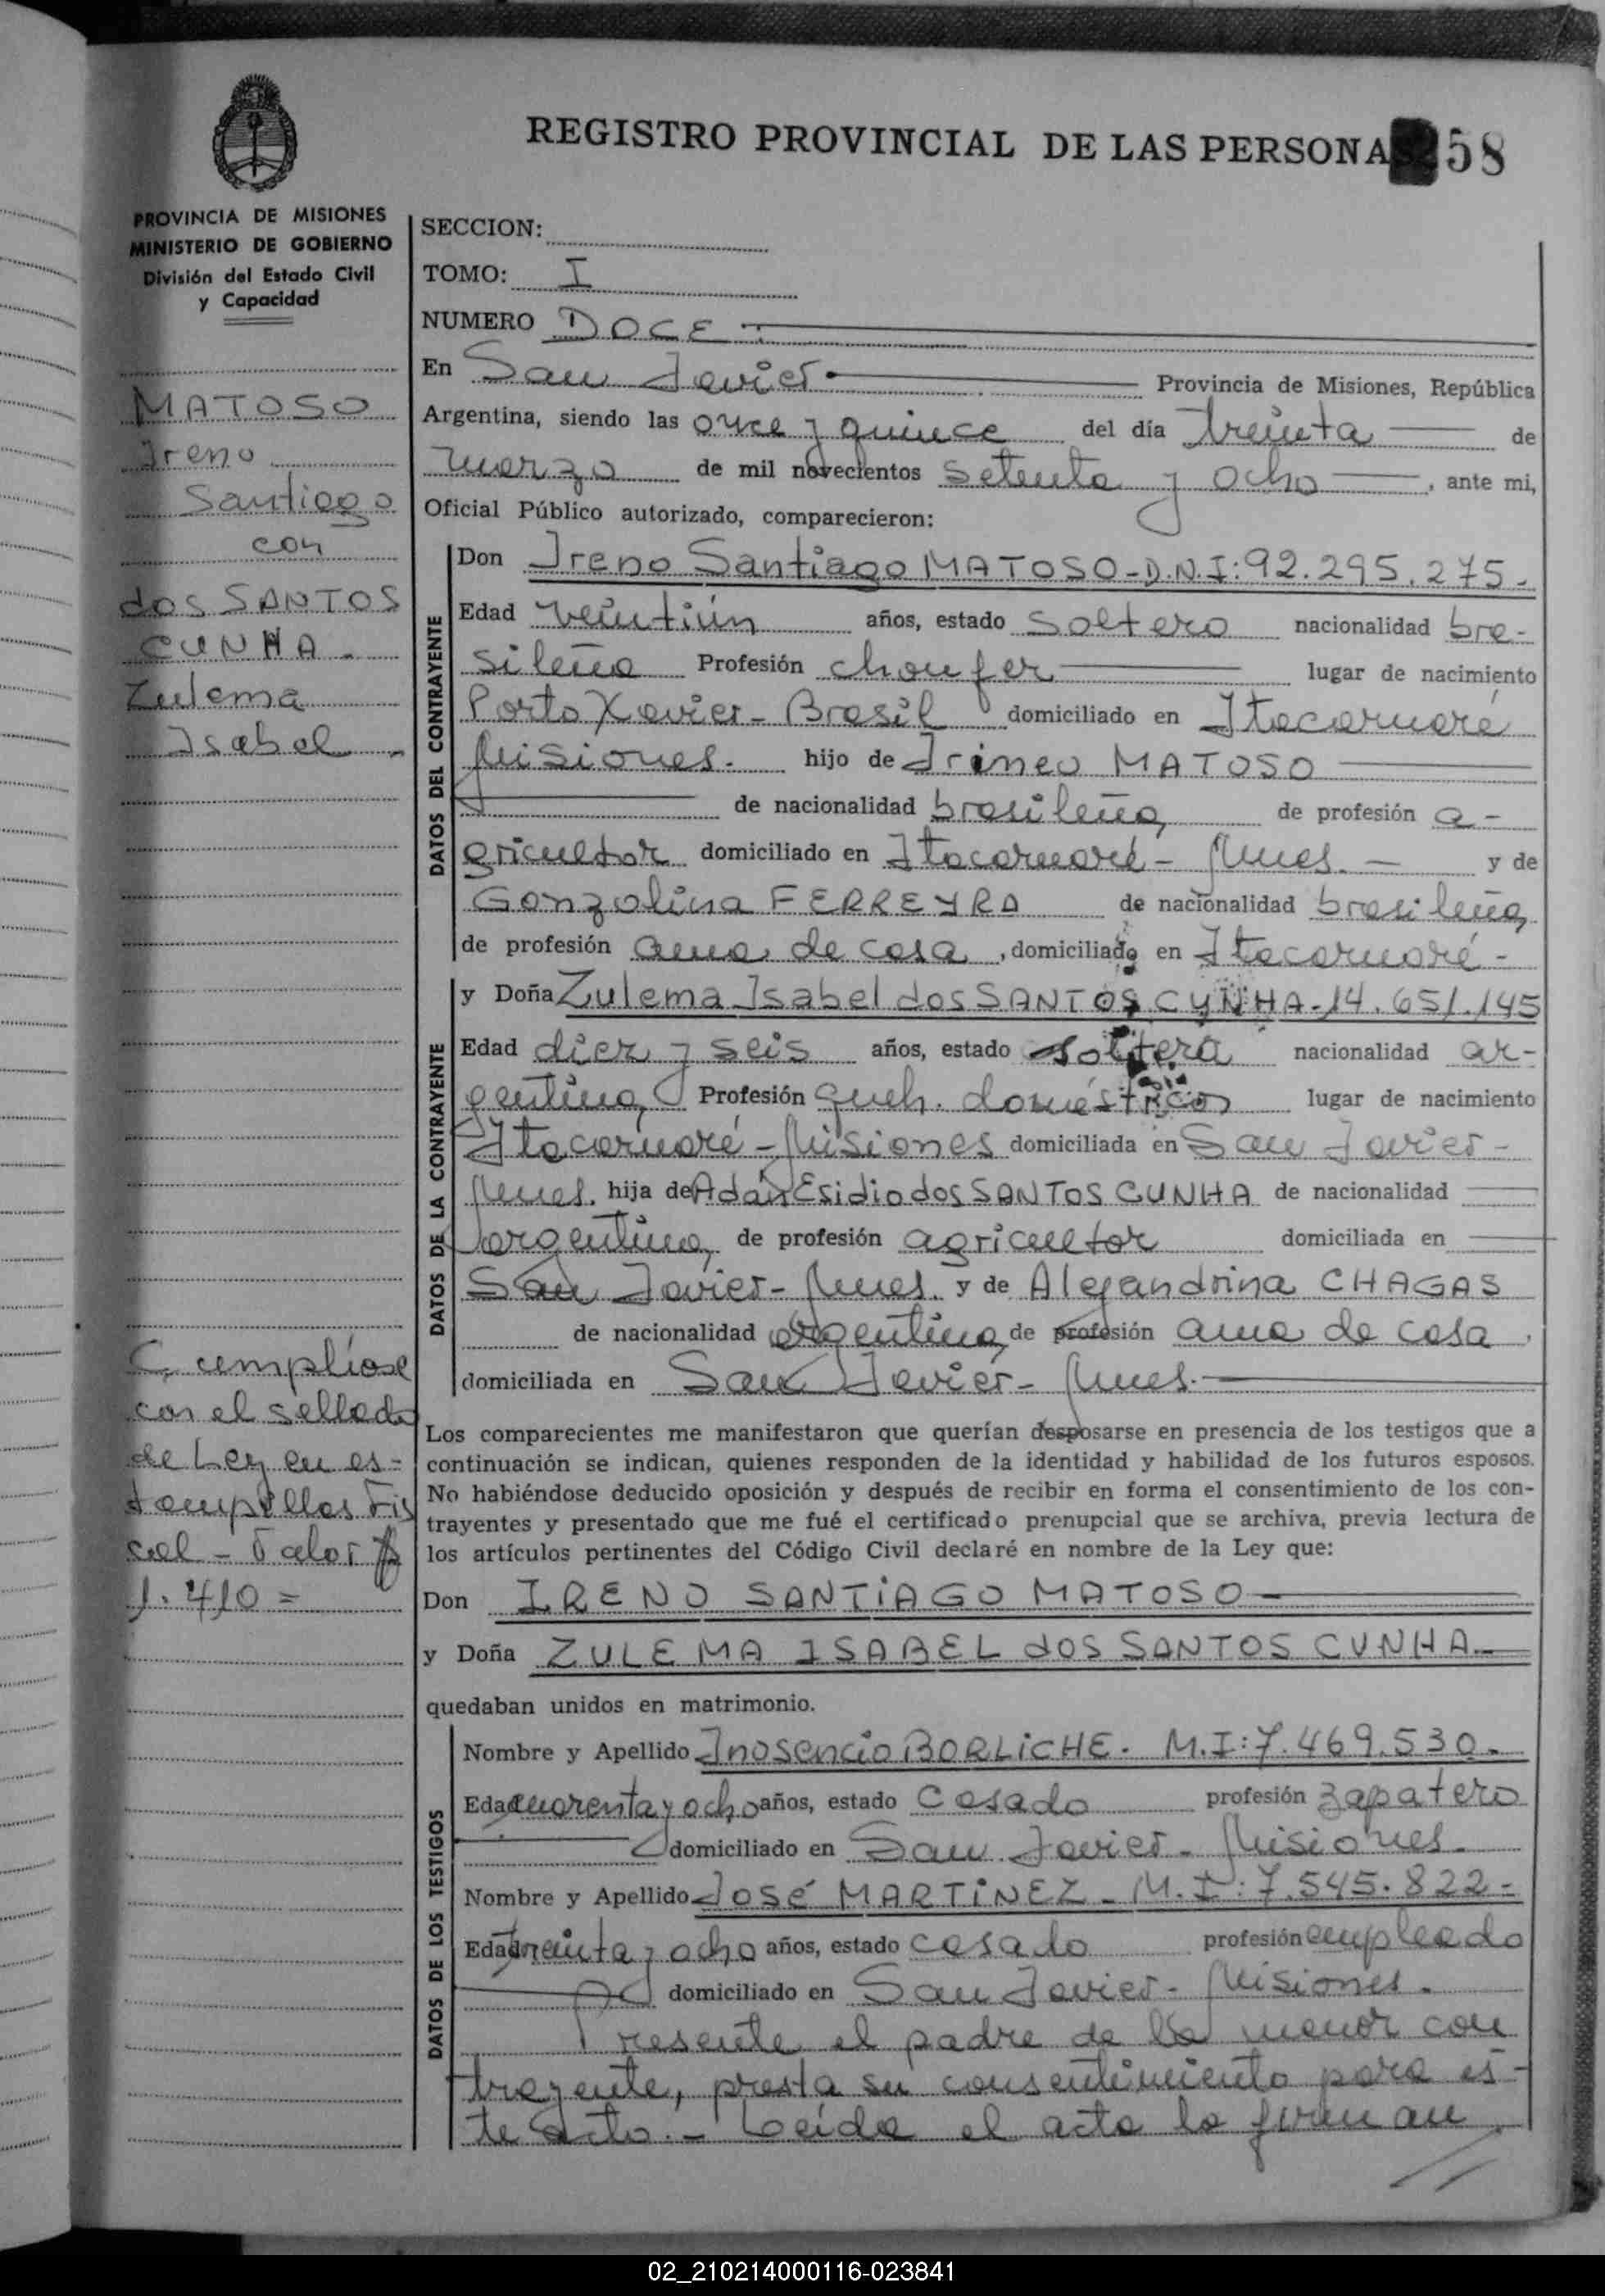 REGISTRO PROVINCIAL DE LAS PERSONAS 58
PROVINCIA DE MISIONES
MINISTERIO DE GOBIERNO
División del Estado Civil
y Capacidad
MATOSO
Ireno
Santiago
con
dos SANTOS
CUNHA.
Zulema
Isabel.
Cumplióse
con el sellado
de Ley en es-
tampillas Fis
cal - Valor $
1.410=
SECCION:
TOMO: I
NUMERO DOCE.
En San Javier. Provincia de Misiones, República
Argentina, siendo las once y quince del día treinta de
marzo de mil novecientos setenta y ocho, ante mi,
Oficial Público autorizado, comparecieron:
DATOS DEL CONTRAYENTE
Don Ireno Santiago MATOSO-D.N.I:92.295.275.
Edad veintiún años, estado soltero nacionalidad bra-
sileña Profesión choufer lugar de nacimiento
Porto Xavier - Brasil domiciliado en Itacaruaré
Misiones. hijo de Irineo MATOSO
de nacionalidad brasileña de profesión a-
gricultor domiciliado en Itacaruaré - Mnes. - y de
Gonzolina FERREYRA de nacionalidad brasileña
de profesión ama de casa, domiciliada en Itacaruaré-
DATOS DE LA CONTRAYENTE
y Doña Zulema Isabel dos SANTOS CUNHA-14.651.145
Edad diez y seis años, estado soltera nacionalidad ar-
gentina Profesión queh. domésticos lugar de nacimiento
Itacaruaré - Misiones domiciliada en San Javier-
Mnes. hija de Adán Esidio dos SANTOS CUNHA de nacionalidad
argentina, de profesión agricultor domiciliada en
San Javier - Mnes. y de Alejandrina CHAGAS
de nacionalidad argentina de profesión ama de casa,
domiciliada en San Javier - Mnes.
Los comparecientes me manifestaron que querían desposarse en presencia de los testigos que a
continuación se indican, quienes responden de la identidad y habilidad de los futuros esposos.
No habiéndose deducido oposición y después de recibir en forma el consentimiento de los con-
trayentes y presentado que me fué el certificado prenupcial que se archiva, previa lectura de
los artículos pertinentes del Código Civil declaré en nombre de la Ley que:
Don IRENO SANTIAGO MATOSO
y Doña ZULEMA ISABEL dos SANTOS CUNHA
quedaban unidos en matrimonio.
DATOS DE LOS TESTIGOS
Nombre y Apellido Inosencio BORLICHE. M.I:7.469.530.
Edad cuarenta y ocho años, estado casado profesión zapatero
domiciliado en San Javier - Misiones.
Nombre y Apellido José MARTINEZ - M.I:7.545.822-
Edad treinta y ocho años, estado casado profesión empleado
domiciliado en San Javier - Misiones.
Presente el padre de la menor con
trayente, presta su consentimiento para es-
te acto. - Leída el acta la firman
02_210214000116-023841